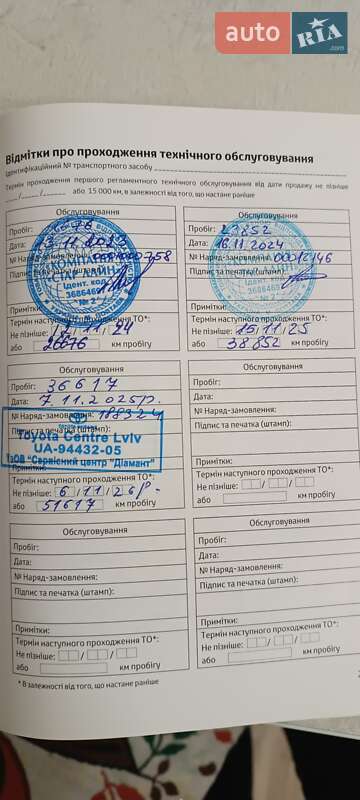 auto RIA.com
Відмітки про проходження технічного обслуговування
Ідентифікаційний № транспортного засобу
Термін проходження першого регламентного технічного обслуговування від дати продажу не пізніше
__/__/__ або 15 000 км, в залежності від того, що настане раніше
Обслуговування
Пробіг:
Дата: 13.11.2023
№ Наряд-замовлення:
Підпис та печатка (штамп):
КОМПАНІЯ
"СТАР ЛАЙН"
Ідент. код
3686469
№ 2
Примітки:
Термін наступного проходження ТО*:
Не пізніше: 12 / 11 / 24
або 26676 км пробігу
Обслуговування
Пробіг: 23852
Дата: 16.11.2024
№ Наряд-замовлення: 00012146
Підпис та печатка (штамп):
Ідент. код
3686469
№ 2
Примітки:
Термін наступного проходження ТО*:
Не пізніше: 15 / 11 / 25
або 38852 км пробігу
Обслуговування
Пробіг: 36617
Дата: 7.11.2025р.
№ Наряд-замовлення: 188324
Підпис та печатка (штамп):
Toyota Centre Lviv
UA-94432-05
ТзОВ "Сервісний центр "Діамант"
Примітки:
Термін наступного проходження ТО*:
Не пізніше: 6 / 11 / 26р.
або 51617 км пробігу
Обслуговування
Пробіг:
Дата:
№ Наряд-замовлення:
Підпис та печатка (штамп):
Примітки:
Термін наступного проходження ТО*:
Не пізніше: / /
або км пробігу
Обслуговування
Пробіг:
Дата:
№ Наряд-замовлення:
Підпис та печатка (штамп):
Примітки:
Термін наступного проходження ТО*:
Не пізніше: / /
або км пробігу
Обслуговування
Пробіг:
Дата:
№ Наряд-замовлення:
Підпис та печатка (штамп):
Примітки:
Термін наступного проходження ТО*:
Не пізніше: / /
або км пробігу
* В залежності від того, що настане раніше